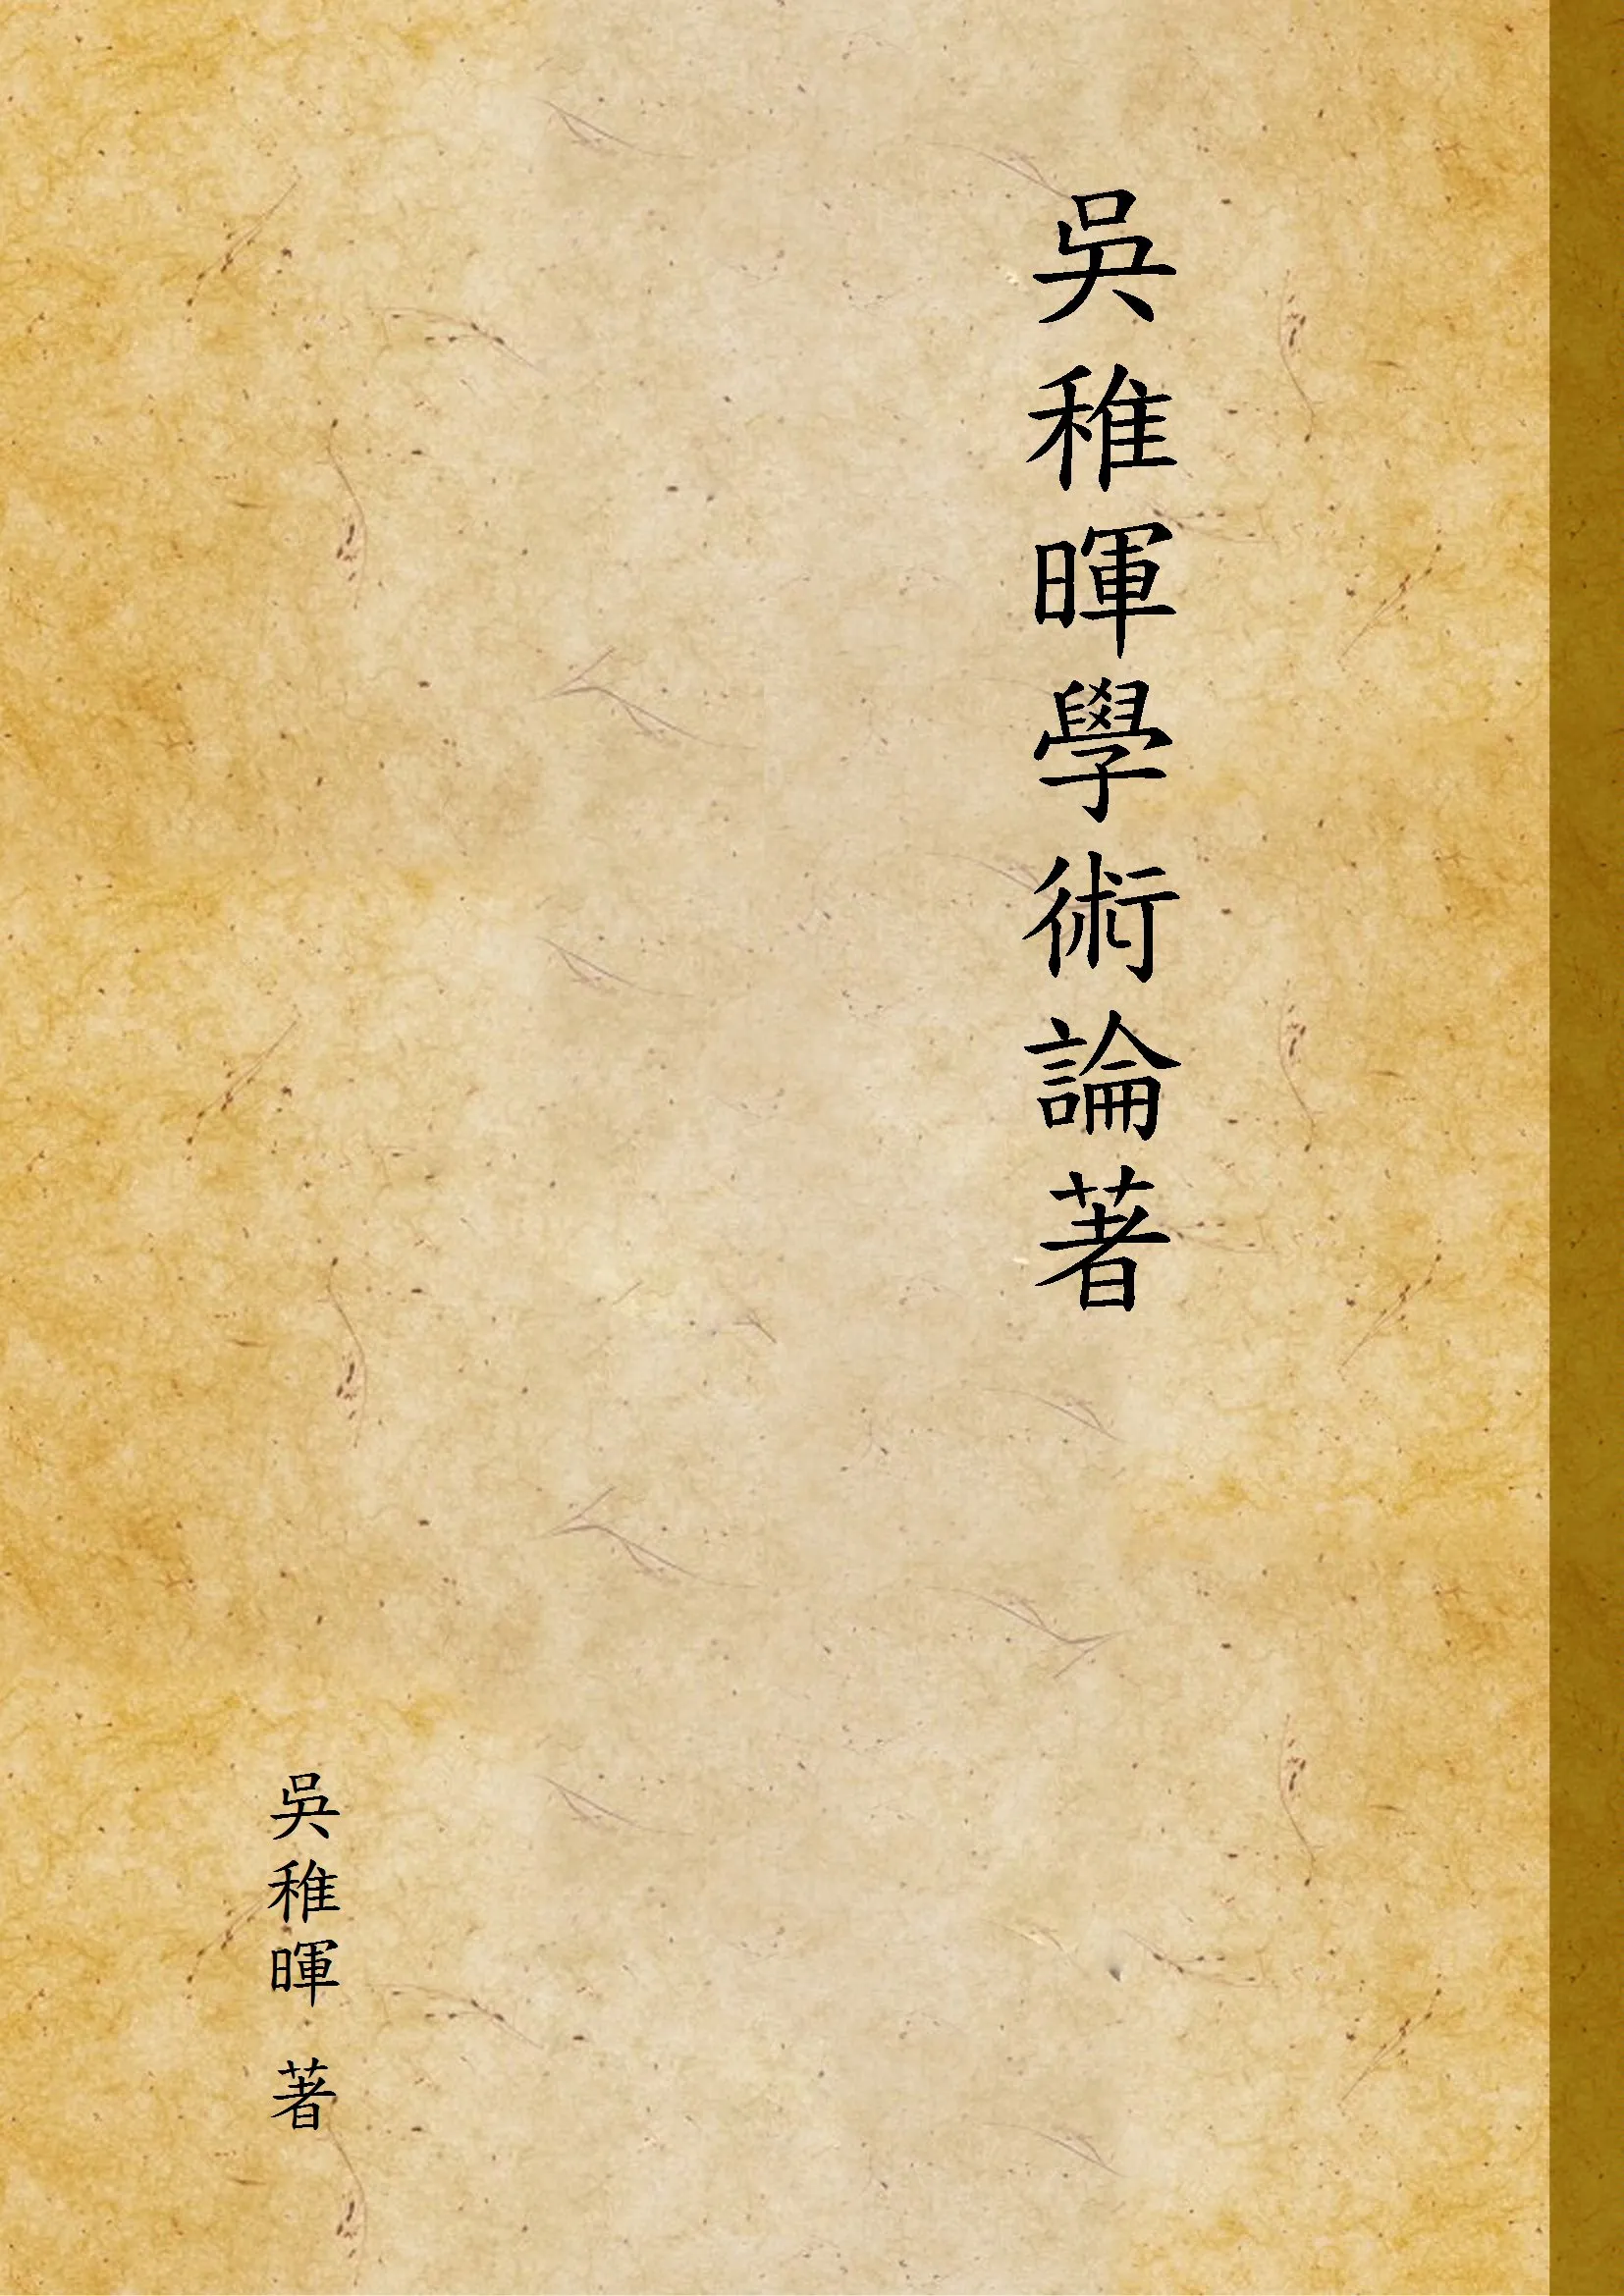 吳稚暉學術論著
吳稚暉 著